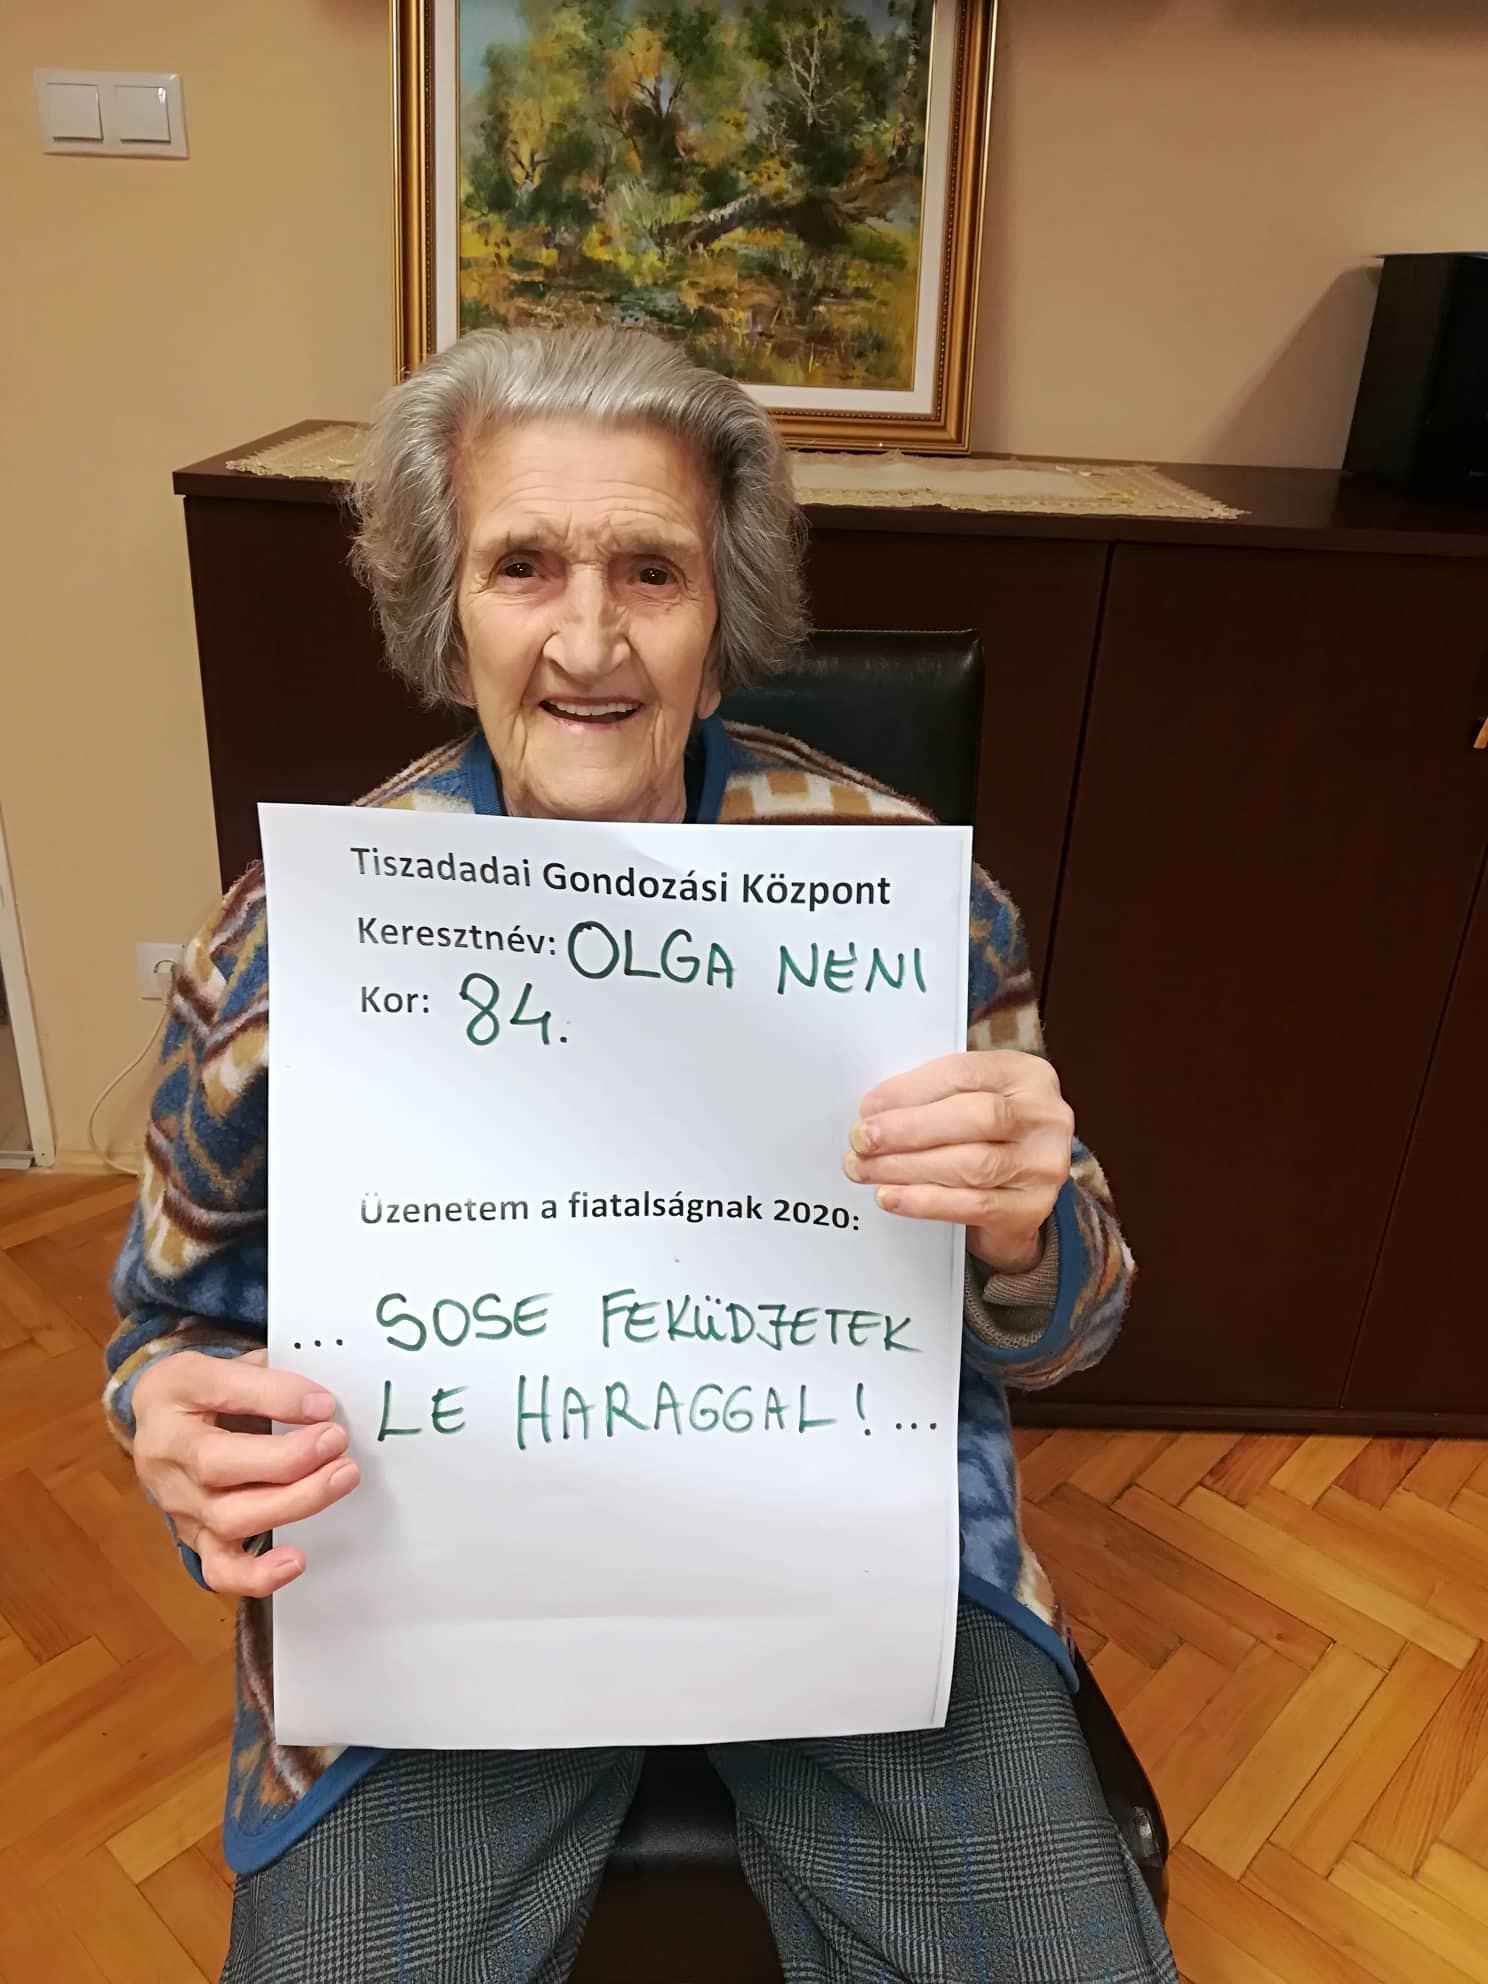 Tiszadadai Gondozási Központ
Keresztnév: OLGA NÉNI
Kor: 84.
Üzenetem a fiatalságnak 2020:
... SOSE FEKÜDJETEK
LE HARAGGAL! ...